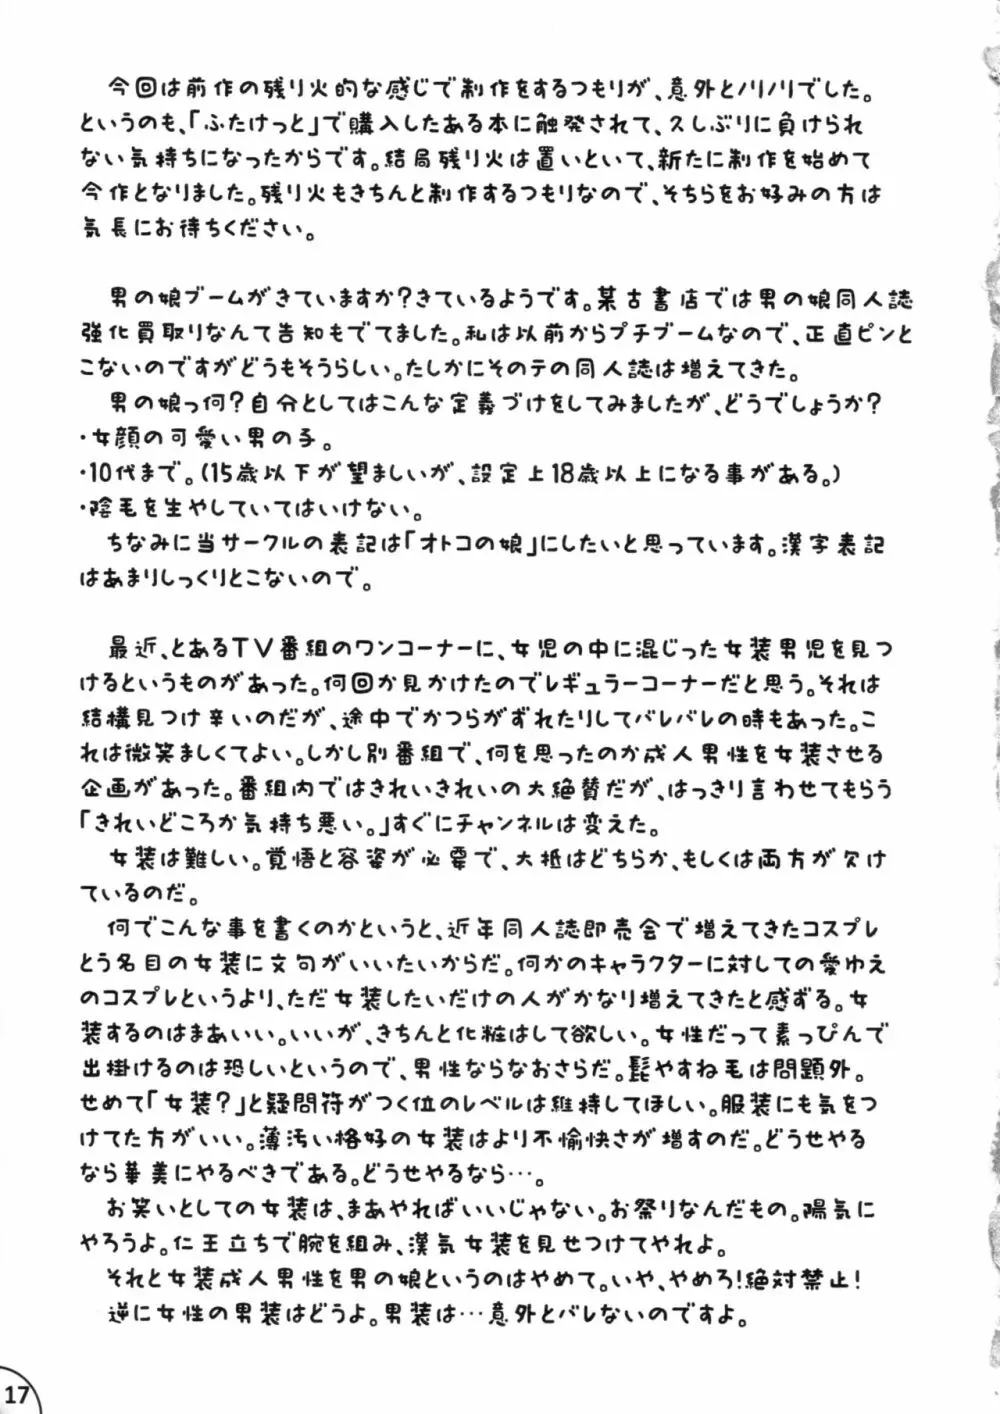 今回は前作の残り火的な感じで制作をするつもりが、意外とノリノリでした。
というのも、「ふたけっと」で購入したある本に触発されて、久しぶりに負けられ
ない気持ちになったからです。結局残り火は置いといて、新たに制作を始めて
今作となりました。残り火もきちんと制作するつもりなので、そちらをお好みの方は
気長にお待ちください。
男の娘ブームがきていますか?きているようです。某古書店では男の娘同人誌
強化買取りなんて告知もでてました。私は以前からプチブームなので、正直ピンと
こないのですがどうもそうらしい。たしかにそのテの同人誌は増えてきた。
ちなみに当サークルの表記は「オトコの娘」にしたいと思っています。漢字表記
はあまりしっくりとこないので。
最近、とあるTV番組のワンコーナーに、女児の中に混じった女装男児を見つ
けるというものがあった。何回か見かけたのでレギュラーコーナーだと思う。それは
結構見つけ辛いのだが、途中でかつらがずれたりしてバレバレの時もあった。こ
れは微笑ましくてよい。しかし別番組で、何を思ったのか成人男性を女装させる
企画があった。番組内ではきれいきれいの大絶賛だが、はっきり言わせてもらう
「きれいどころか気持ち悪い。」すぐにチャンネルは変えた。
女装は難しい。覚悟と容姿が必要で、大抵はどちらか、もしくは両方が欠け
ているのだ。
何でこんな事を書くのかというと、近年同人誌即売会で増えてきたコスプレ
とう名目の女装に文句がいいたいからだ。何かのキャラクターに対しての愛ゆえ
のコスプレというより、ただ女装したいだけの人がかなり増えてきたと感ずる。女
装するのはまあいい。いいが、きちんと化粧はして欲しい。女性だって素っぴんで
出掛けるのは恐しいというので、男性ならなおさらだ。髭やすね毛は問題外。
せめて「女装?」と疑問符がつく位のレベルは維持してほしい。服装にも気をつ
けてた方がいい。薄汚い格好の女装はより不愉快さが増すのだ。どうせやる
なら華美にやるべきである。どうせやるなら…。
お笑いとしての女装は、まあやればいいじゃない。お祭りなんだもの。陽気に
やろうよ。仁王立ちで腕を組み、漢気女装を見せつけてやれよ。
それと女装成人男性を男の娘というのはやめて。いや、やめろ!絶対禁止!
逆に女性の男装はどうよ。男装は…意外とバレないのですよ。
17